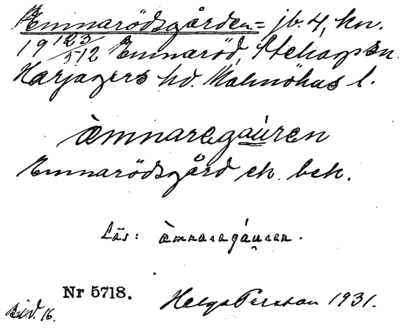 Emnarödsgården = jb. 4, kn.
19 123/512 Emnaröd, Stehags sn.
Harjagers hd. Malmöhus l.
àmnaregáuren
Emnarödsgård ek. bek.
Läs: àmnaregáuren.
Nr 5718.
Helge Persson 1931.
16.